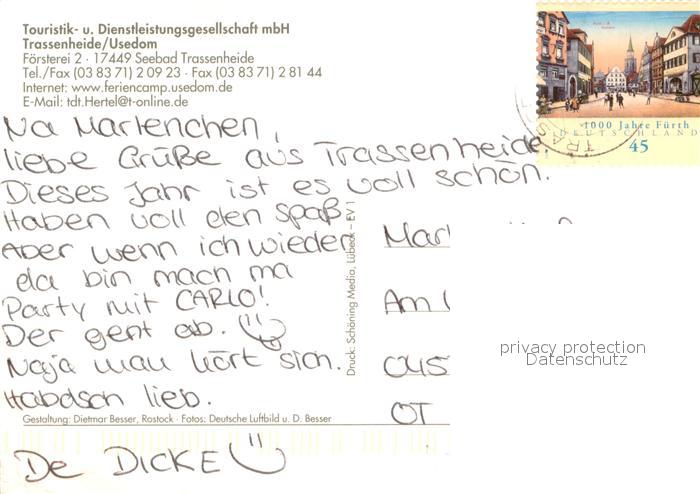 Touristik- u. Dienstleistungsgesellschaft mbH
Trassenheide/Usedom
Försterei 2 · 17449 Seebad Trassenheide
Tel./Fax (03 83 71) 2 09 23 · Fax (03 83 71) 2 81 44
Internet: www.feriencamp.usedom.de
E-Mail: tdt.Hertel@t-online.de
1000 Jahre Fürth
DEUTSCHLAND
45
Na Marlenchen,
liebe Grüße aus Trassenheide.
Dieses Jahr ist es voll schön.
Haben voll den Spaß.
Aber wenn ich wieder
da bin mach ma
Party mit CARLO!
Der geht ab.
Naja man hört sich.
Habdsch lieb.
De DICKE
Druck: Schöning Media, Lübeck – EV 1
Am
OT
privacy protection
Datenschutz
Gestaltung: Dietmar Besser, Rostock · Fotos: Deutsche Luftbild u. D. Besser